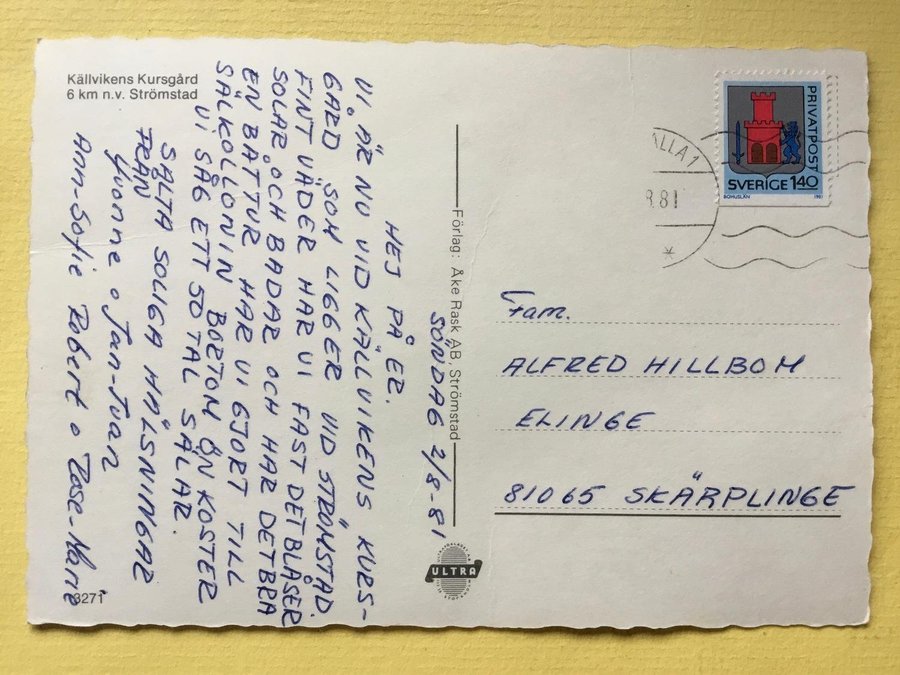 Källvikens Kursgård
6 km n.v. Strömstad
SÖNDAG 2/8-81
HEJ PÅ ER.
VI ÄR NU VID KÄLLVIKENS KURS-
GÅRD SOM LIGGER VID STRÖMSTAD.
FINT VÄDER HAR VI FAST DET BLÅSER
SOLAR OCH BADAR OCH HAR DET BRA
EN BÅTTUR HAR VI GJORT TILL
SÄLKOLLONIN BORTOM ÖN KOSTER
VI SÅG ETT 50 TAL SÄLAR.
SALTA SOLIGA HÄLSNINGAR
FRÅN
Yvonne o Jan-Ivan
Ann-Sofie Robert o Rose-Marie
3271
Förlag: Åke Rask AB, Strömstad
ULTRA
PRIVATPOST
SVERIGE 140
BOHUSLÄN 1981
ALLA 1
8.81
Fam.
ALFRED HILLBOM
ELINGE
81065 SKÄRPLINGE